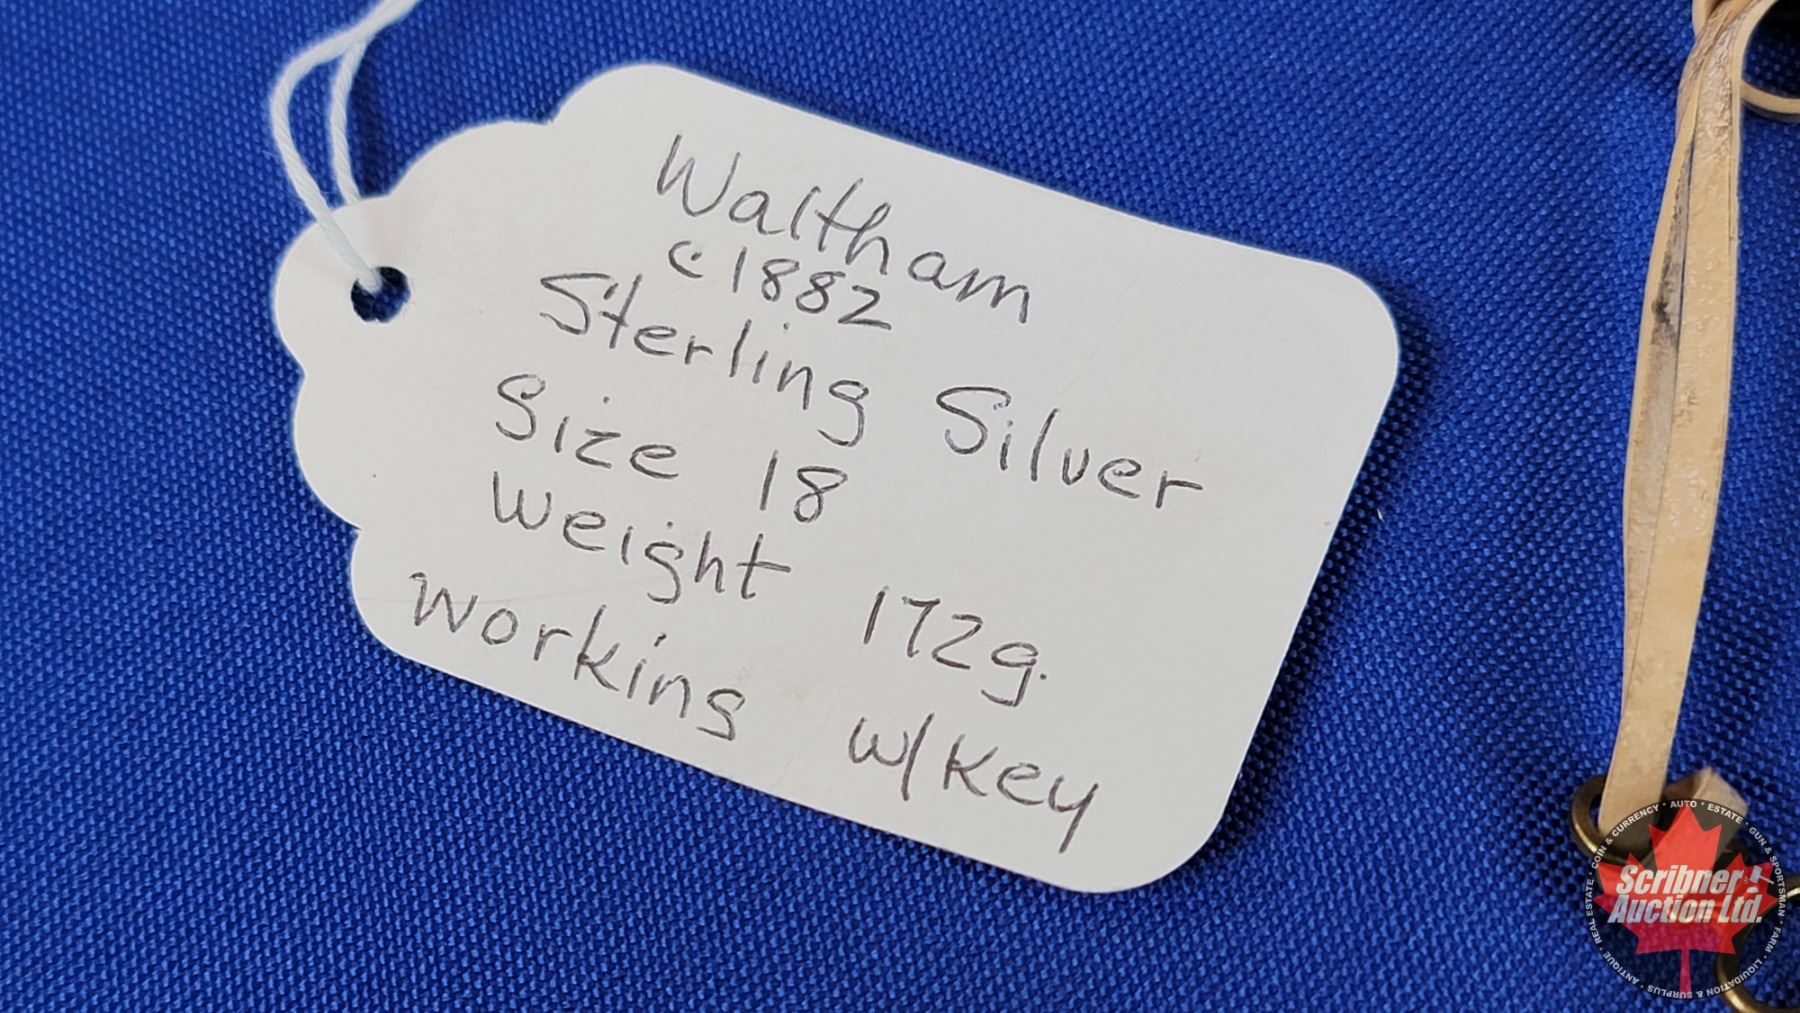 Waltham
c1882
Sterling Silver
Size 18
Weight 172g.
Working w/Key
COIN & CURRENCY • AUTO • ESTATE • GUN & SPORTSMAN • FARM • LIQUIDATION & SURPLUS • ANTIQUE • REAL ESTATE •
Scribner
Auction Ltd.